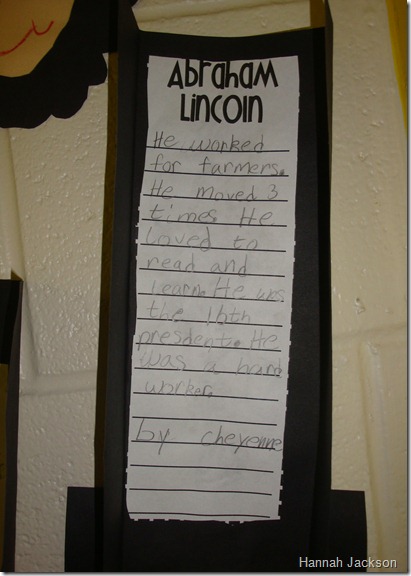 Abraham
Lincoln
He worked
for farmers.
He moved 3
times. He
loved to
read and
learn. He was
the 16th
presdent. He
was a hard
worker.
by cheyenne
Hannah Jackson